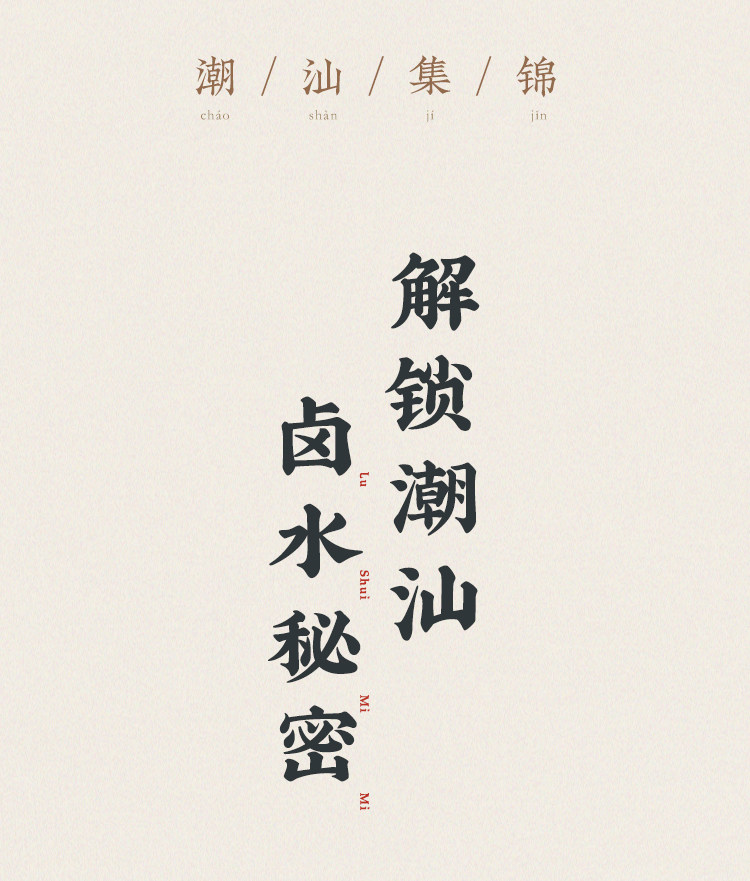 潮/汕/集/锦
cháo shàn jí jǐn
解锁潮汕
卤水秘密
Lu Shui Mi Mi